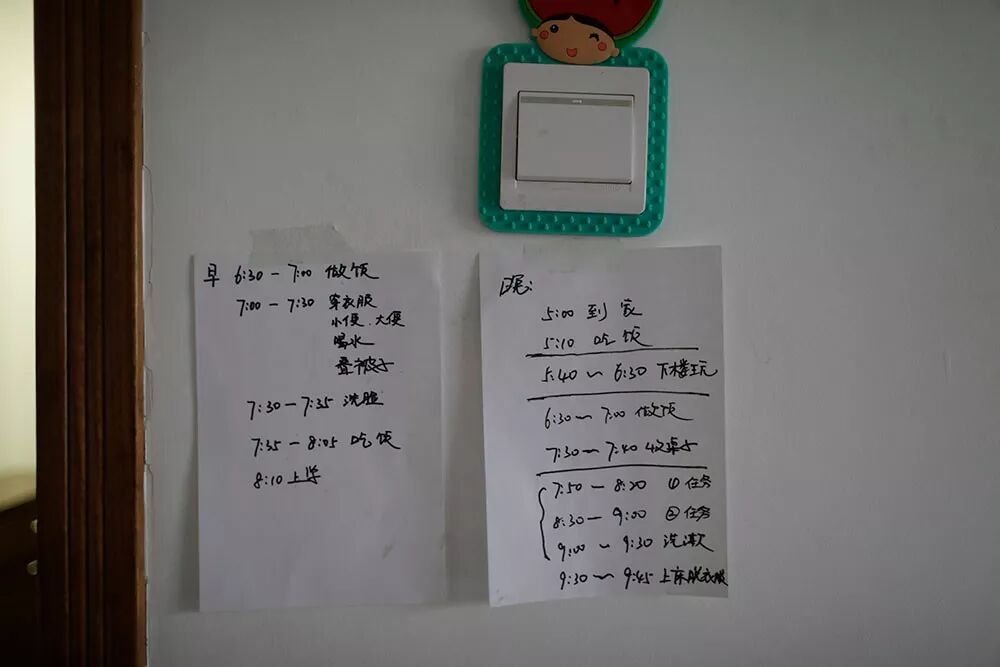 早 6:30 - 7:00 做饭
7:00 - 7:30 穿衣服
小便、大便
喝水
叠被子
7:30 - 7:35 洗脸
7:35 - 8:05 吃饭
8:10 上学
晚:
5:00 到家
5:10 吃饭
5:40 ~ 6:30 下楼玩
6:30 ~ 7:00 做饭
7:30 ~ 7:40 收桌子
7:50 - 8:20 ① 任务
8:30 - 9:00 ② 任务
9:00 ~ 9:30 洗漱
9:30 ~ 9:45 上床脱衣服